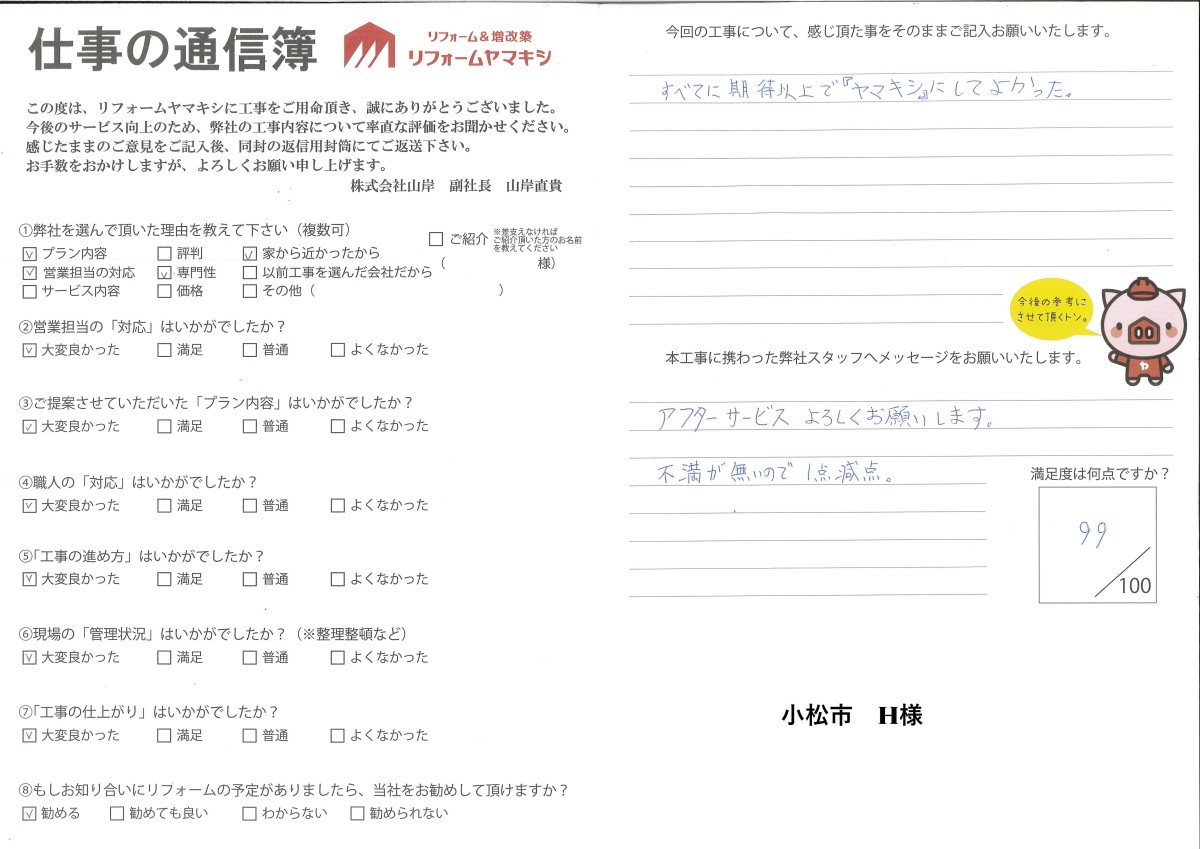 仕事の通信簿
リフォーム&増改築
リフォームヤマキシ
この度は、リフォームヤマキシに工事をご用命頂き、誠にありがとうございました。
今後のサービス向上のため、弊社の工事内容について率直な評価をお聞かせください。
感じたままのご意見をご記入後、同封の返信用封筒にてご返送下さい。
お手数をおかけしますが、よろしくお願い申し上げます。
株式会社山岸 副社長 山岸直貴
①弊社を選んで頂いた理由を教えて下さい（複数可）
☑ プラン内容 □ 評判 ☑ 家から近かったから
☑ 営業担当の対応 ☑ 専門性 □ 以前工事を選んだ会社だから
□ サービス内容 □ 価格 □ その他（ ）
□ ご紹介 ※差支えなければ
ご紹介頂いた方のお名前
を教えてください
（ 様）
②営業担当の「対応」はいかがでしたか？
☑ 大変良かった □ 満足 □ 普通 □ よくなかった
③ご提案させていただいた「プラン内容」はいかがでしたか？
☑ 大変良かった □ 満足 □ 普通 □ よくなかった
④職人の「対応」はいかがでしたか？
☑ 大変良かった □ 満足 □ 普通 □ よくなかった
⑤「工事の進め方」はいかがでしたか？
☑ 大変良かった □ 満足 □ 普通 □ よくなかった
⑥現場の「管理状況」はいかがでしたか？（※整理整頓など）
☑ 大変良かった □ 満足 □ 普通 □ よくなかった
⑦「工事の仕上がり」はいかがでしたか？
☑ 大変良かった □ 満足 □ 普通 □ よくなかった
⑧もしお知り合いにリフォームの予定がありましたら、当社をお勧めして頂けますか？
☑ 勧める □ 勧めても良い □ わからない □ 勧められない
今回の工事について、感じ頂た事をそのままご記入お願いいたします。
すべてに期待以上で『ヤマキシ』にしてよかった。
今後の参考に
させて頂くトン。
ヤ
本工事に携わった弊社スタッフへメッセージをお願いいたします。
アフターサービスよろしくお願いします。
不満が無いので1点減点。
満足度は何点ですか？
99
/100
小松市 H様